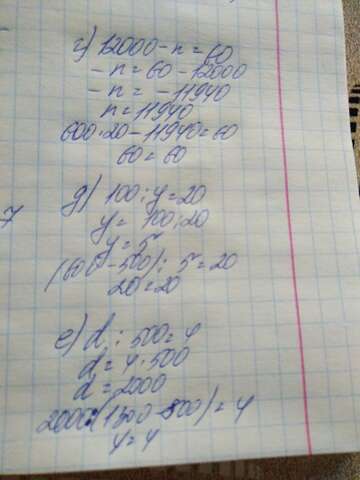 г) 12000 - n = 60
- n = 60 - 12000
- n = - 11940
n = 11940
600 · 20 - 11940 = 60
60 = 60
д) 100 : y = 20
y = 100 : 20
y = 5
(600 - 500) : 5 = 20
20 = 20
е) d : 500 = 4
d = 4 · 500
d = 2000
2000 : (1300 - 800) = 4
4 = 4